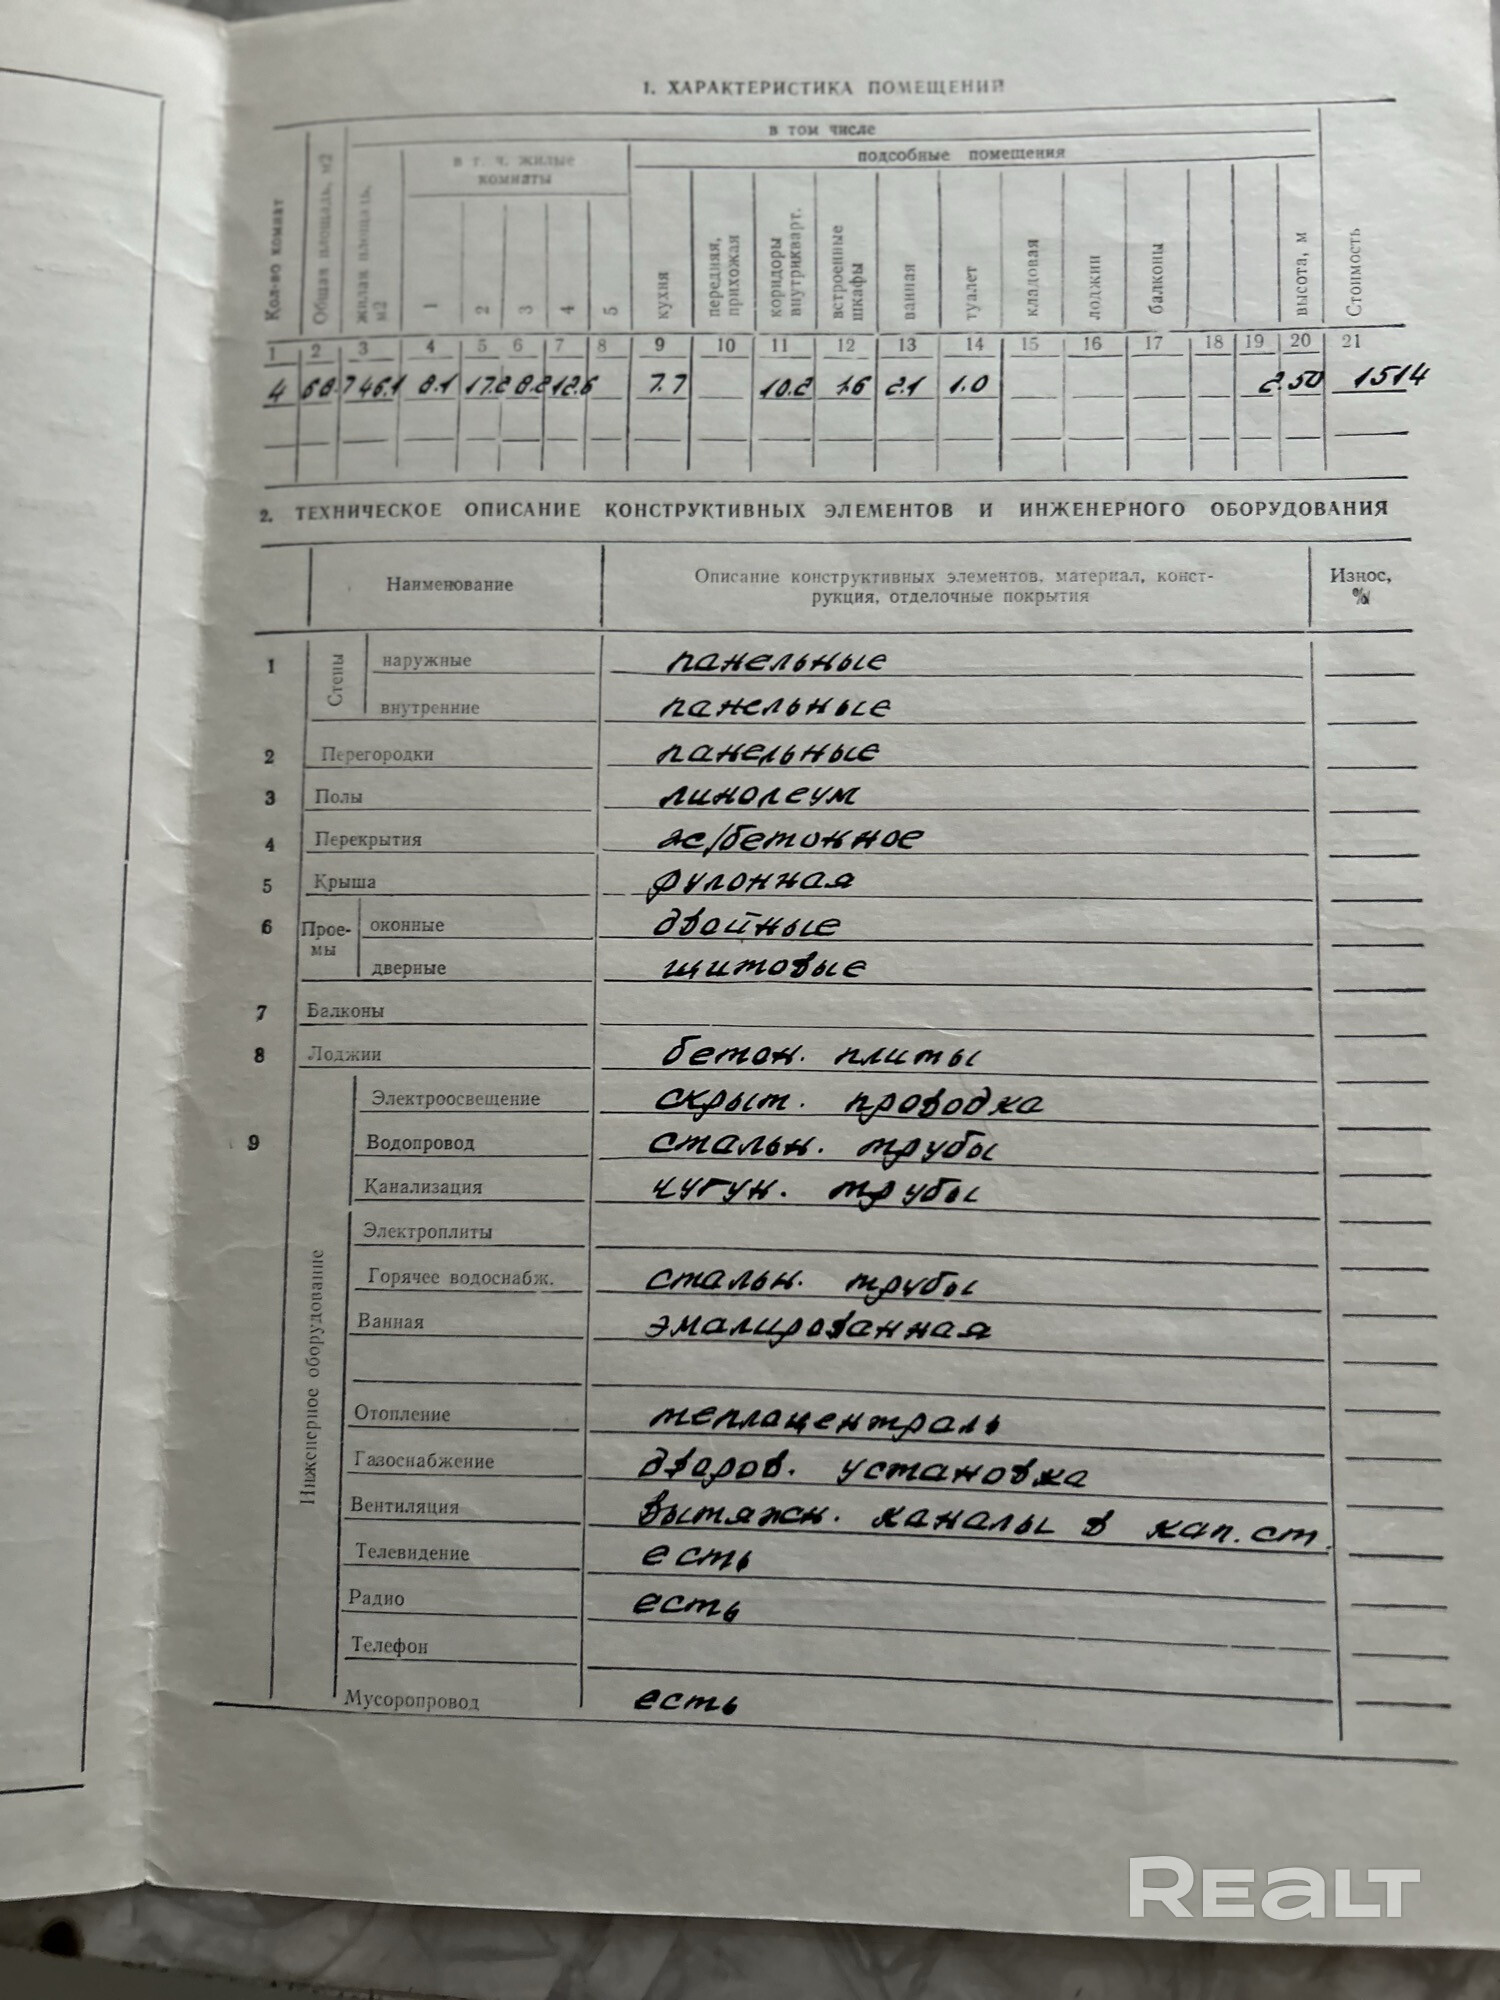 1. ХАРАКТЕРИСТИКА ПОМЕЩЕНИЙ
Кол-во комнат
Общая площадь, м2
в том числе
жилая площадь, м2
в т. ч. жилые комнаты
1 2 3 4 5
подсобные помещения
кухня
передняя, прихожая
коридоры внутрикварт.
встроенные шкафы
ванная
туалет
кладовая
лоджии
балконы
высота, м
Стоимость
1 2 3 4 5 6 7 8 9 10 11 12 13 14 15 16 17 18 19 20 21
4 68.7 46.1 8.1 17.2 8.2 12.6 7.7 10.2 1.6 2.1 1.0 2.50 1514
2. ТЕХНИЧЕСКОЕ ОПИСАНИЕ КОНСТРУКТИВНЫХ ЭЛЕМЕНТОВ И ИНЖЕНЕРНОГО ОБОРУДОВАНИЯ
Наименование
Описание конструктивных элементов, материал, конст-
рукция, отделочные покрытия
Износ,
%
1 Стены наружные панельные
внутренние панельные
2 Перегородки панельные
3 Полы линолеум
4 Перекрытия ж/бетонное
5 Крыша рулонная
6 Прое-
мы
оконные двойные
дверные щитовые
7 Балконы
8 Лоджии бетон. плиты
9 Инженерное оборудование
Электроосвещение скрыт. проводка
Водопровод стальн. трубы
Канализация чугун. трубы
Электроплиты
Горячее водоснабж. стальн. трубы
Ванная эмалированная
Отопление теплоцентраль
Газоснабжение дворов. установка
Вентиляция вытяжн. каналы в кап. ст.
Телевидение есть
Радио есть
Телефон
Мусоропровод есть
REALT